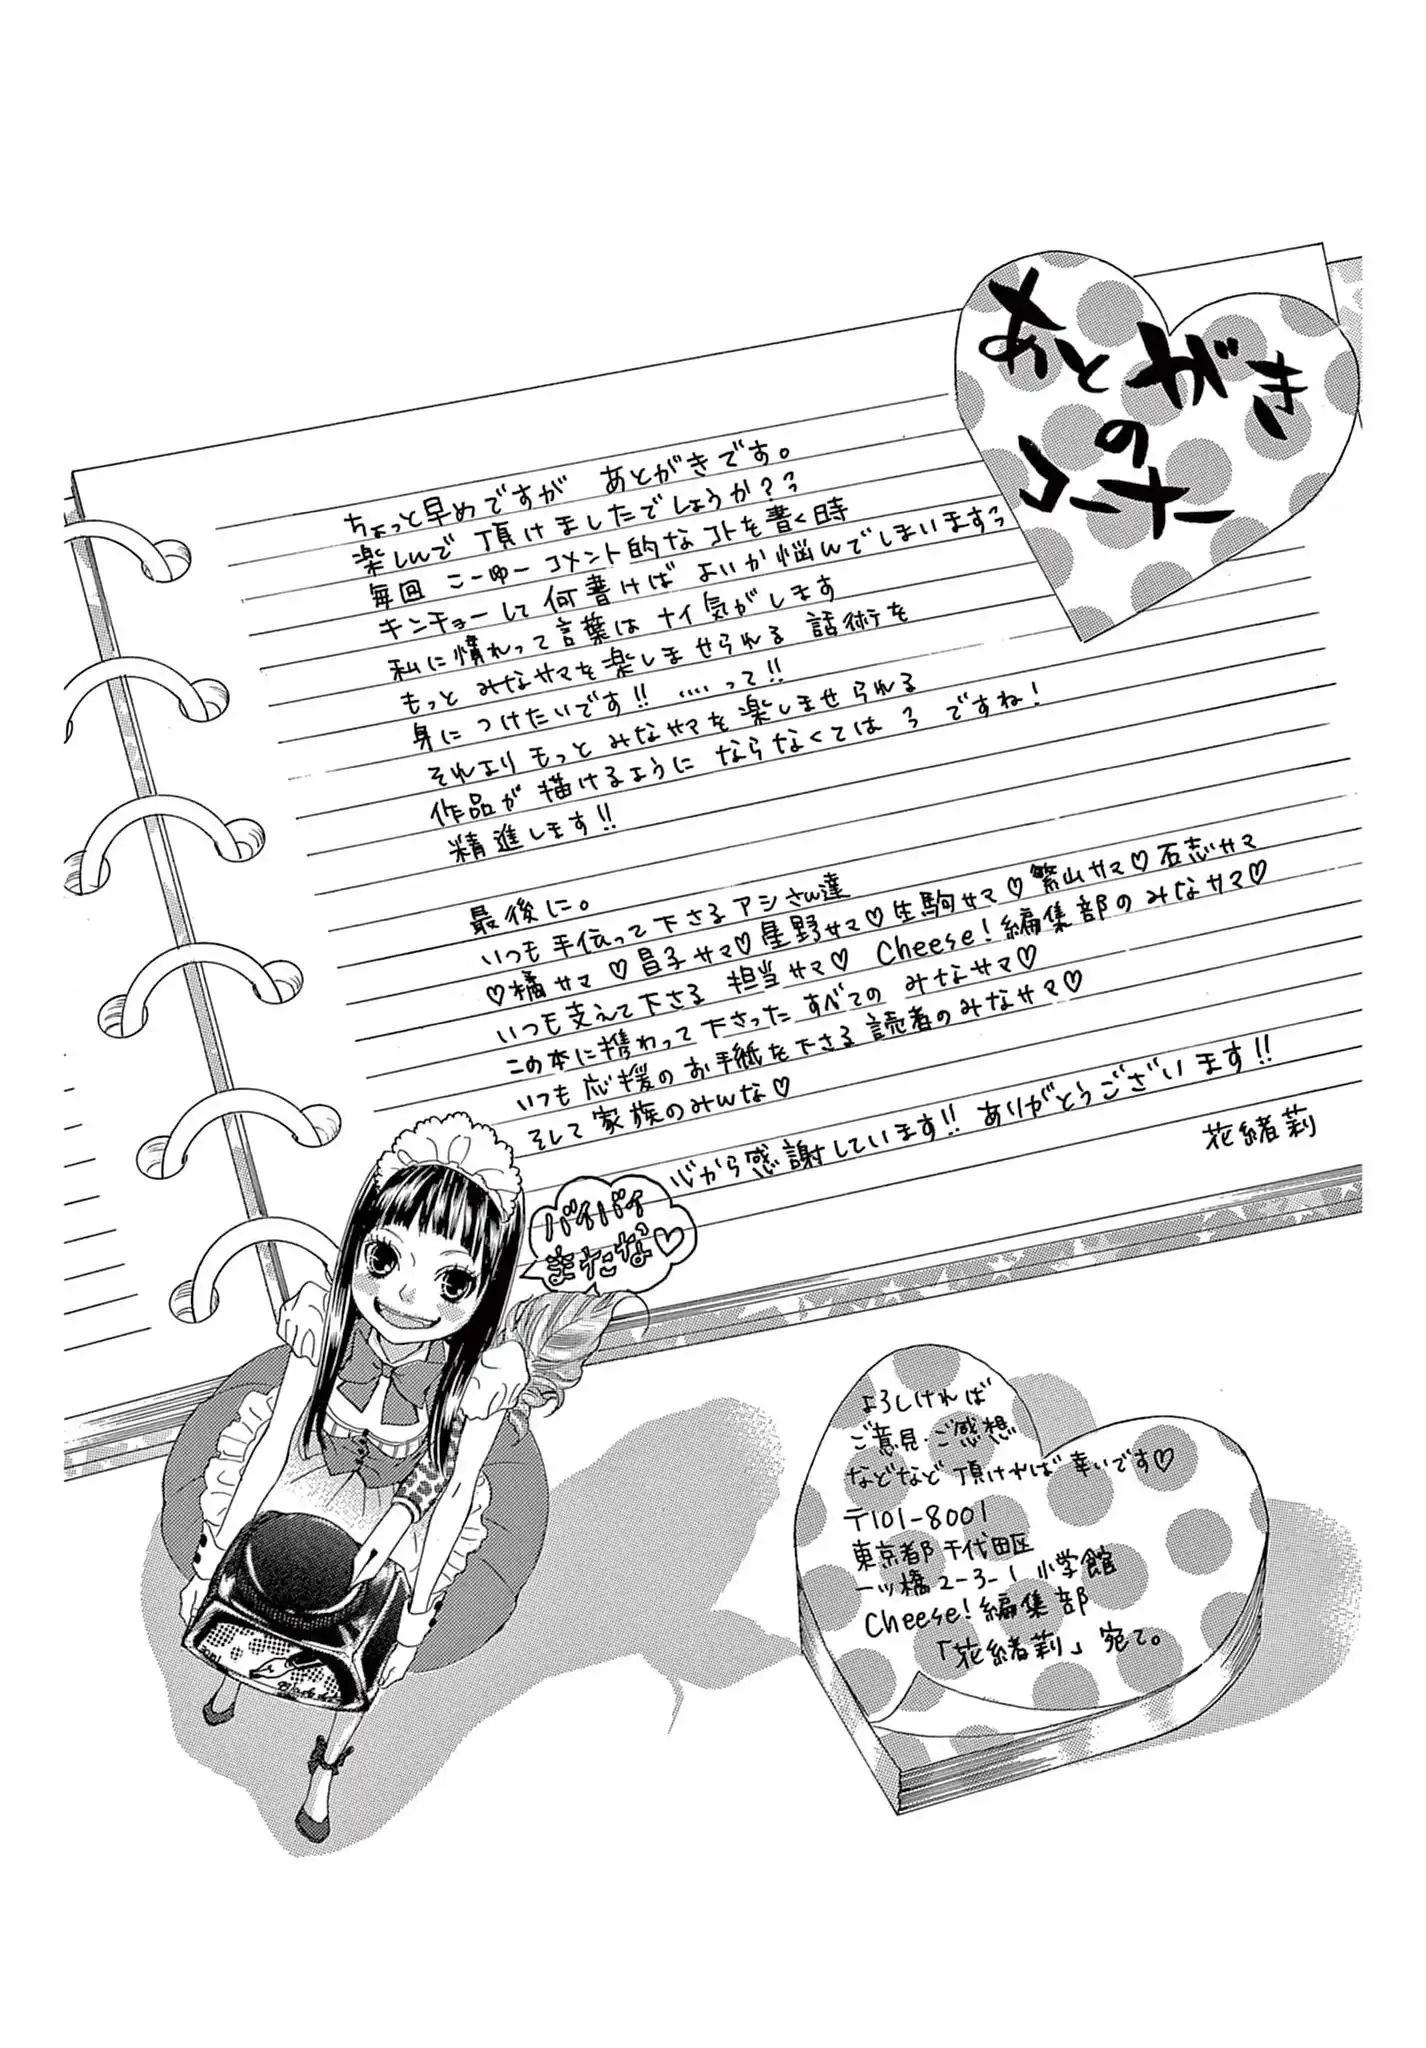 あとがき
の
コーナー
ちょっと早めですが あとがきです。
楽しんで 頂けましたでしょうか?
毎回 こーゆー コメント的な コトを書く時
キンチョーして 何書けば よいか悩んでしまいます
私に慣れって言葉は ナイ気がします
もっと みなサマを楽しませられる 話術を
身に つけたいです!! ....って!!
それよりもっと みなサマを楽しませられる
作品が 描けるように ならなくてはぅ ですね!
精進します!!
最後に。
いつも手伝って下さるアシさん達
♡橘サマ♡昌子サマ♡星野サマ♡生駒サマ♡繁山サマ♡石志サマ
いつも支えて下さる 担当サマ♡ Cheese!編集部のみなサマ♡
この本に携わって下さった すべての みなサマ♡
いつも応援のお手紙を下さる読者のみなサマ♡
そして家族のみんな♡
心から感謝しています!! ありがとうございます!!
花緒莉
バイバイ
またな♡
よろしければ
ご意見・ご感想
などなど 頂ければ 幸いです♡
〒101-8001
東京都 千代田区
一ツ橋2-3-1 小学館
Cheese!編集部
「花緒莉」宛て。